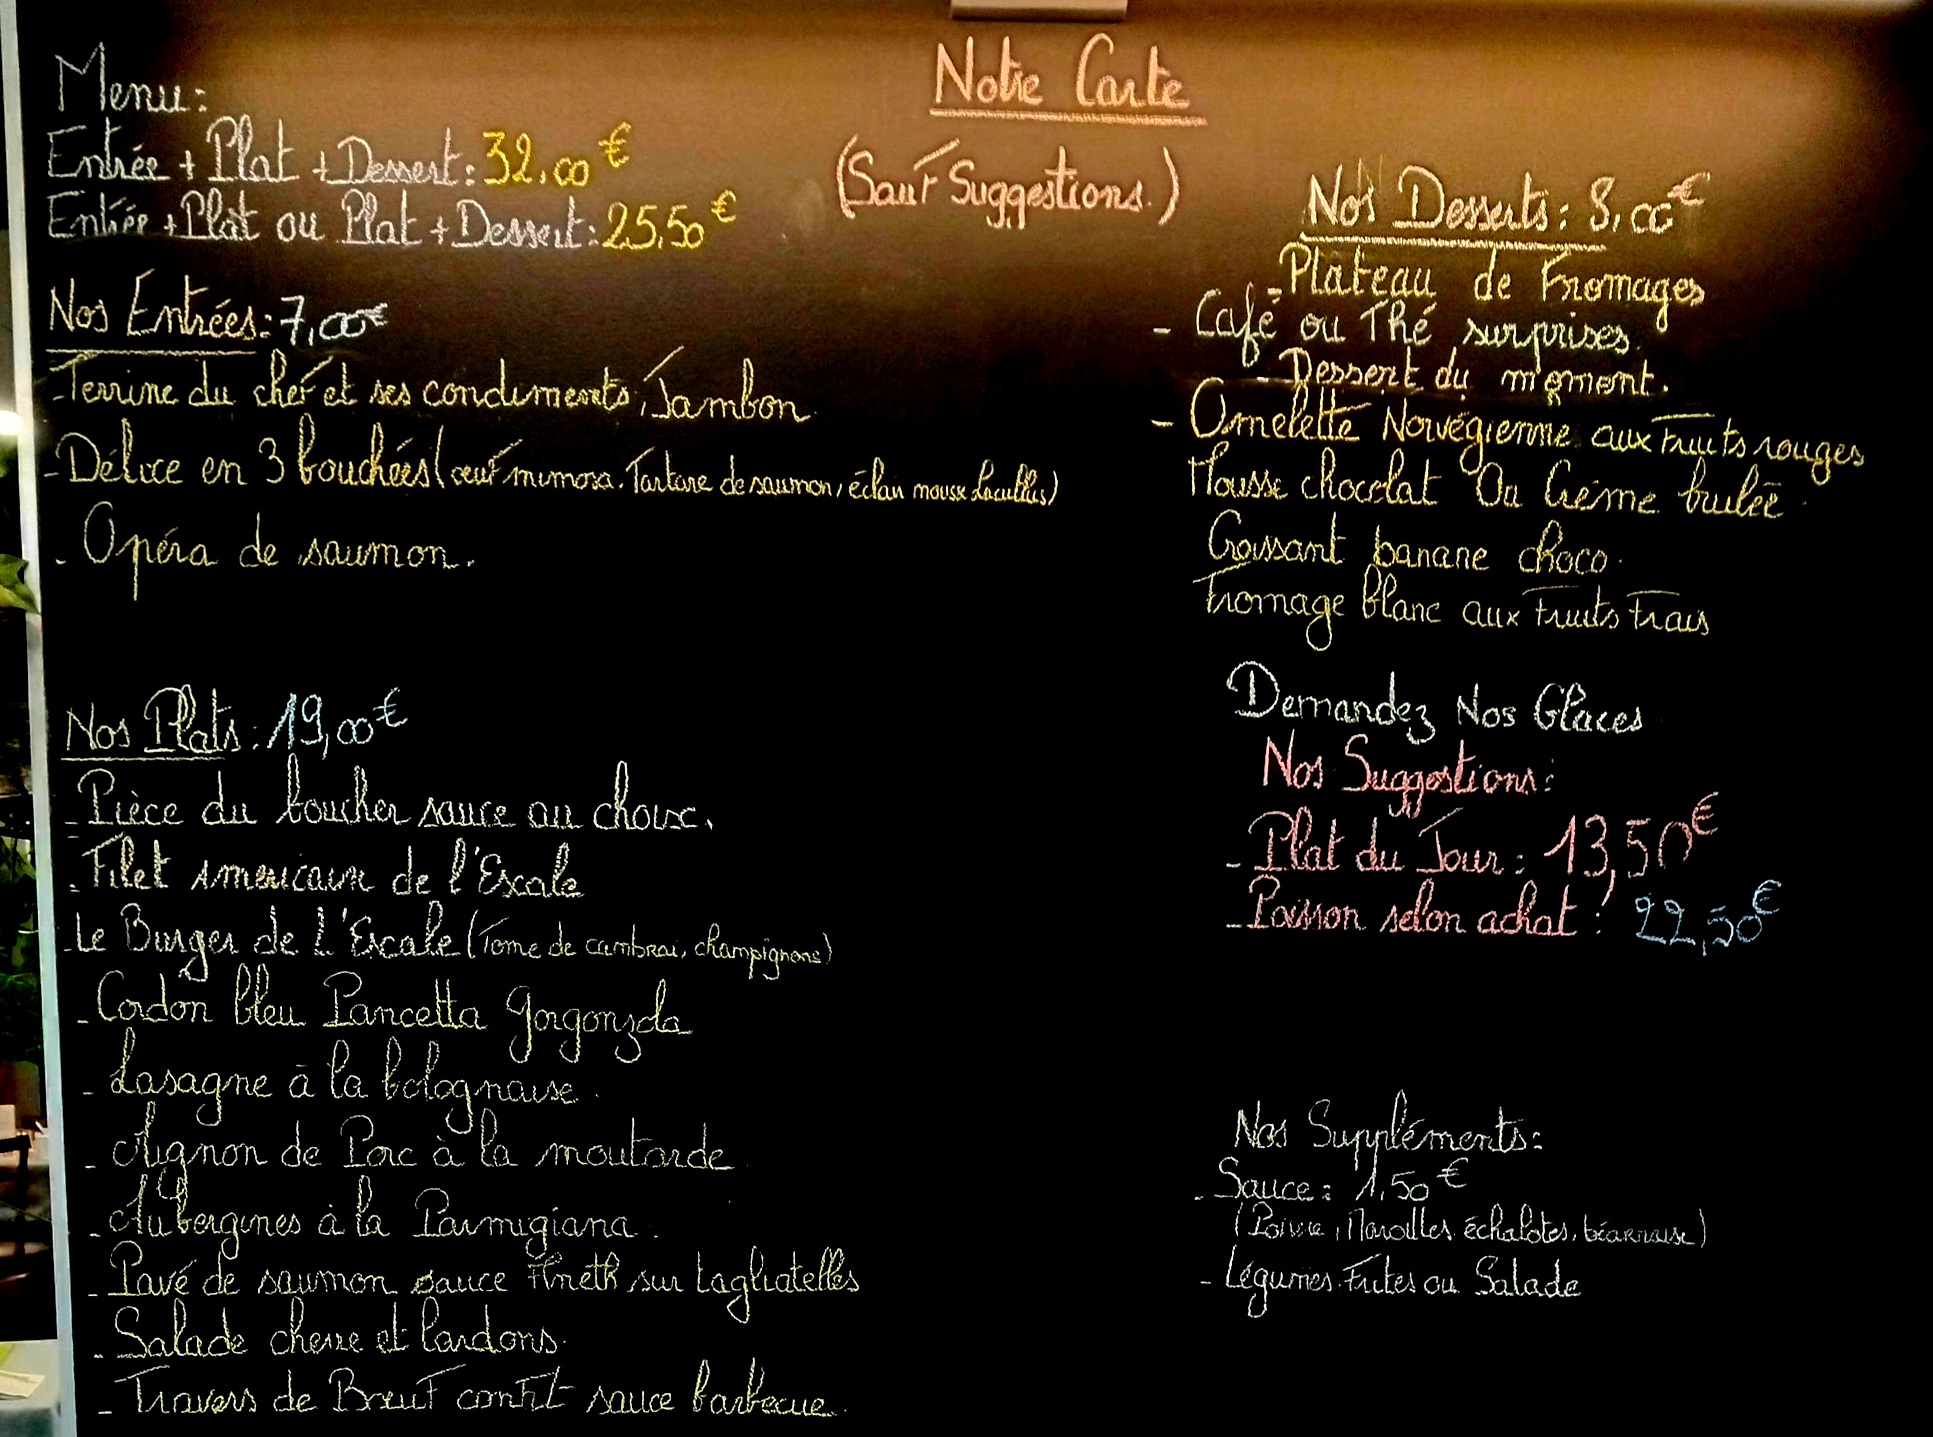 Notre Carte
(Sauf Suggestions.)
Menu:
Entrée + Plat + Dessert: 32,00 €
Entrée + Plat ou Plat + Dessert: 25,50 €
Nos Entrées: 7,00€
- Terrine du chef et ses condiments, Jambon
- Délice en 3 bouchées (œuf mimosa. Tartare de saumon, éclair mousse)
- Opéra de saumon.
Nos Plats: 19,00€
- Pièce du boucher sauce au choix.
- Filet americain de l'Escale
- Le Burger de L'Escale (Tome de cambrai, champignons)
- Cordon bleu Pancetta Gorgonzola
- Lasagne à la bolognaise.
- Mignon de Porc à la moutarde
- Aubergines à la Parmigiana.
- Pavé de saumon sauce Aneth sur tagliatelles
- Salade chevre et lardons.
- Travers de Bœuf confit sauce barbecue.
Nos Desserts: 8,00€
- Plateau de Fromages
- Café ou Thé surprises.
- Dessert du moment.
- Omelette Norvégienne aux Fruits rouges
Mousse chocolat Ou Crème brulée
Croissant banane choco.
Fromage blanc aux Fruits Frais
Demandez Nos Glaces
Nos Suggestions:
- Plat du Jour: 13,50€
- Poisson selon achat: 22,50€
Nos Suppléments:
- Sauce: 1,50€
(Poivre, Maroilles, échalotes, béarnaise)
- Légumes. Frites ou Salade